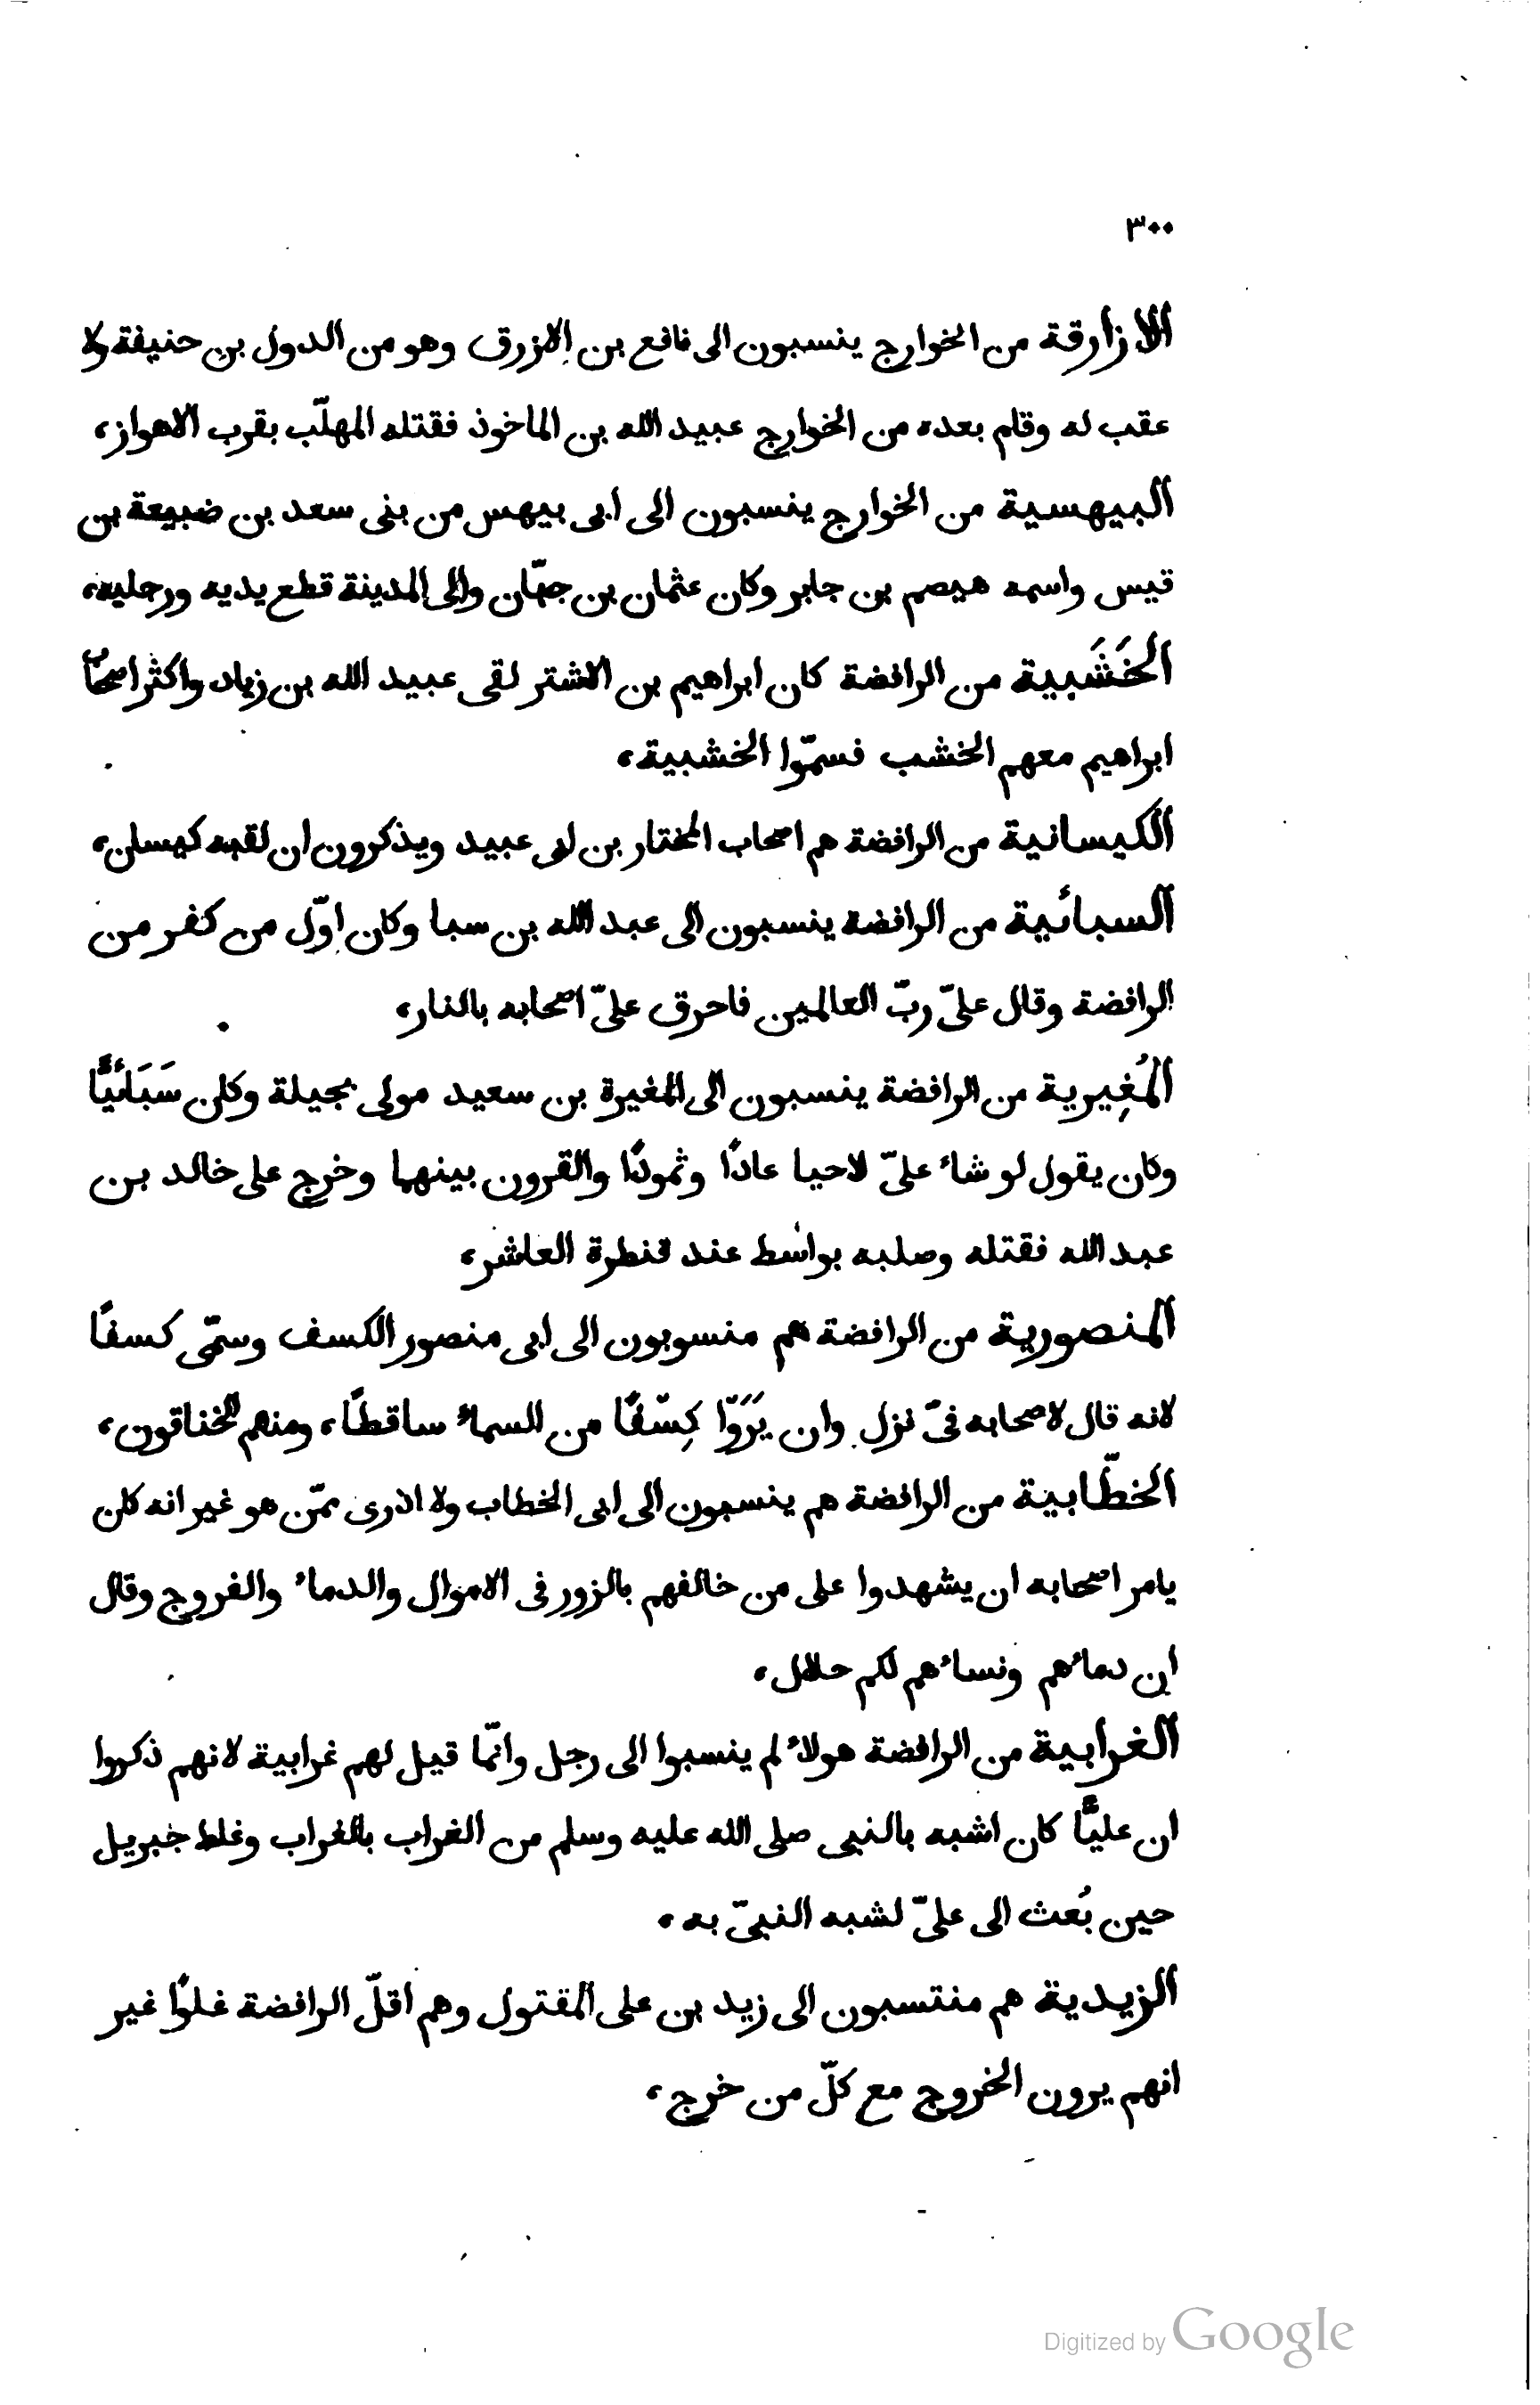 ٣٠٠
الازارقة من الخوارج ينسبون الى نافع بن الازرق وهو من الدول بن حنيفة ولا
عقب له وقام بعده من الخوارج عبيد الله بن الماخوذ فقتله المهلّب بقرب الاهواز،
البيهسية من الخوارج ينسبون الى ابى بيهس من بنى سعد بن ضبيعة بن
قيس واسمه هيصم بن جابر وكان عثمان بن جهّان والى المدينة قطع يديه ورجليه،
الخَشَبية من الرافضة كان ابراهيم بن الاشتر لقى عبيد الله بن زياد واكثر اصحاب
ابراهيم معهم الخشب فسمّوا الخشبية،
الكيسانية من الرافضة هم اصحاب المختار بن ابى عبيد ويذكرون ان لقبه كيسان،
السبائية من الرافضة ينسبون الى عبد الله بن سبا وكان اوّل من كفر من
الرافضة وقال علىّ ربّ العالمين فاحرق علىّ اصحابه بالنار،
المُغِيرية من الرافضة ينسبون الى المغيرة بن سعيد مولى بجيلة وكان سَبَائيًّا
وكان يقول لو شاء علىّ لاحيا عادًا وثمودًا والقرون بينهما وخرج على خالد بن
عبد الله فقتله وصلبه بواسط عند قنطرة العاشر،
المنصورية من الرافضة هم منسوبون الى ابى منصور الكسف وسمّى كسفًا
لانه قال لاصحابه فىّ نزل وان يَرَوْا كِسْفًا من السماء ساقطًا، ومنهم الخناقون،
الخطّابية من الرافضة هم ينسبون الى ابى الخطاب ولا ادرى ممّن هو غير انه كان
يامر اصحابه ان يشهدوا على من خالفهم بالزور فى الاموال والدماء والفروج وقال
ان دماءهم ونساءهم لكم حلال،
الغرابية من الرافضة هولاء لم ينسبوا الى رجل وانّما قيل لهم غرابية لانهم ذكروا
ان عليًّا كان اشبه بالنبى صلى الله عليه وسلم من الغراب بالغراب وغلط جبريل
حين بُعث الى علىّ لشبه النبىّ به،
الزيدية هم منتسبون الى زيد بن على المقتول وهم اقلّ الرافضة غلوًّا غير
انهم يرون الخروج مع كلّ من خرج،
Digitized by Google